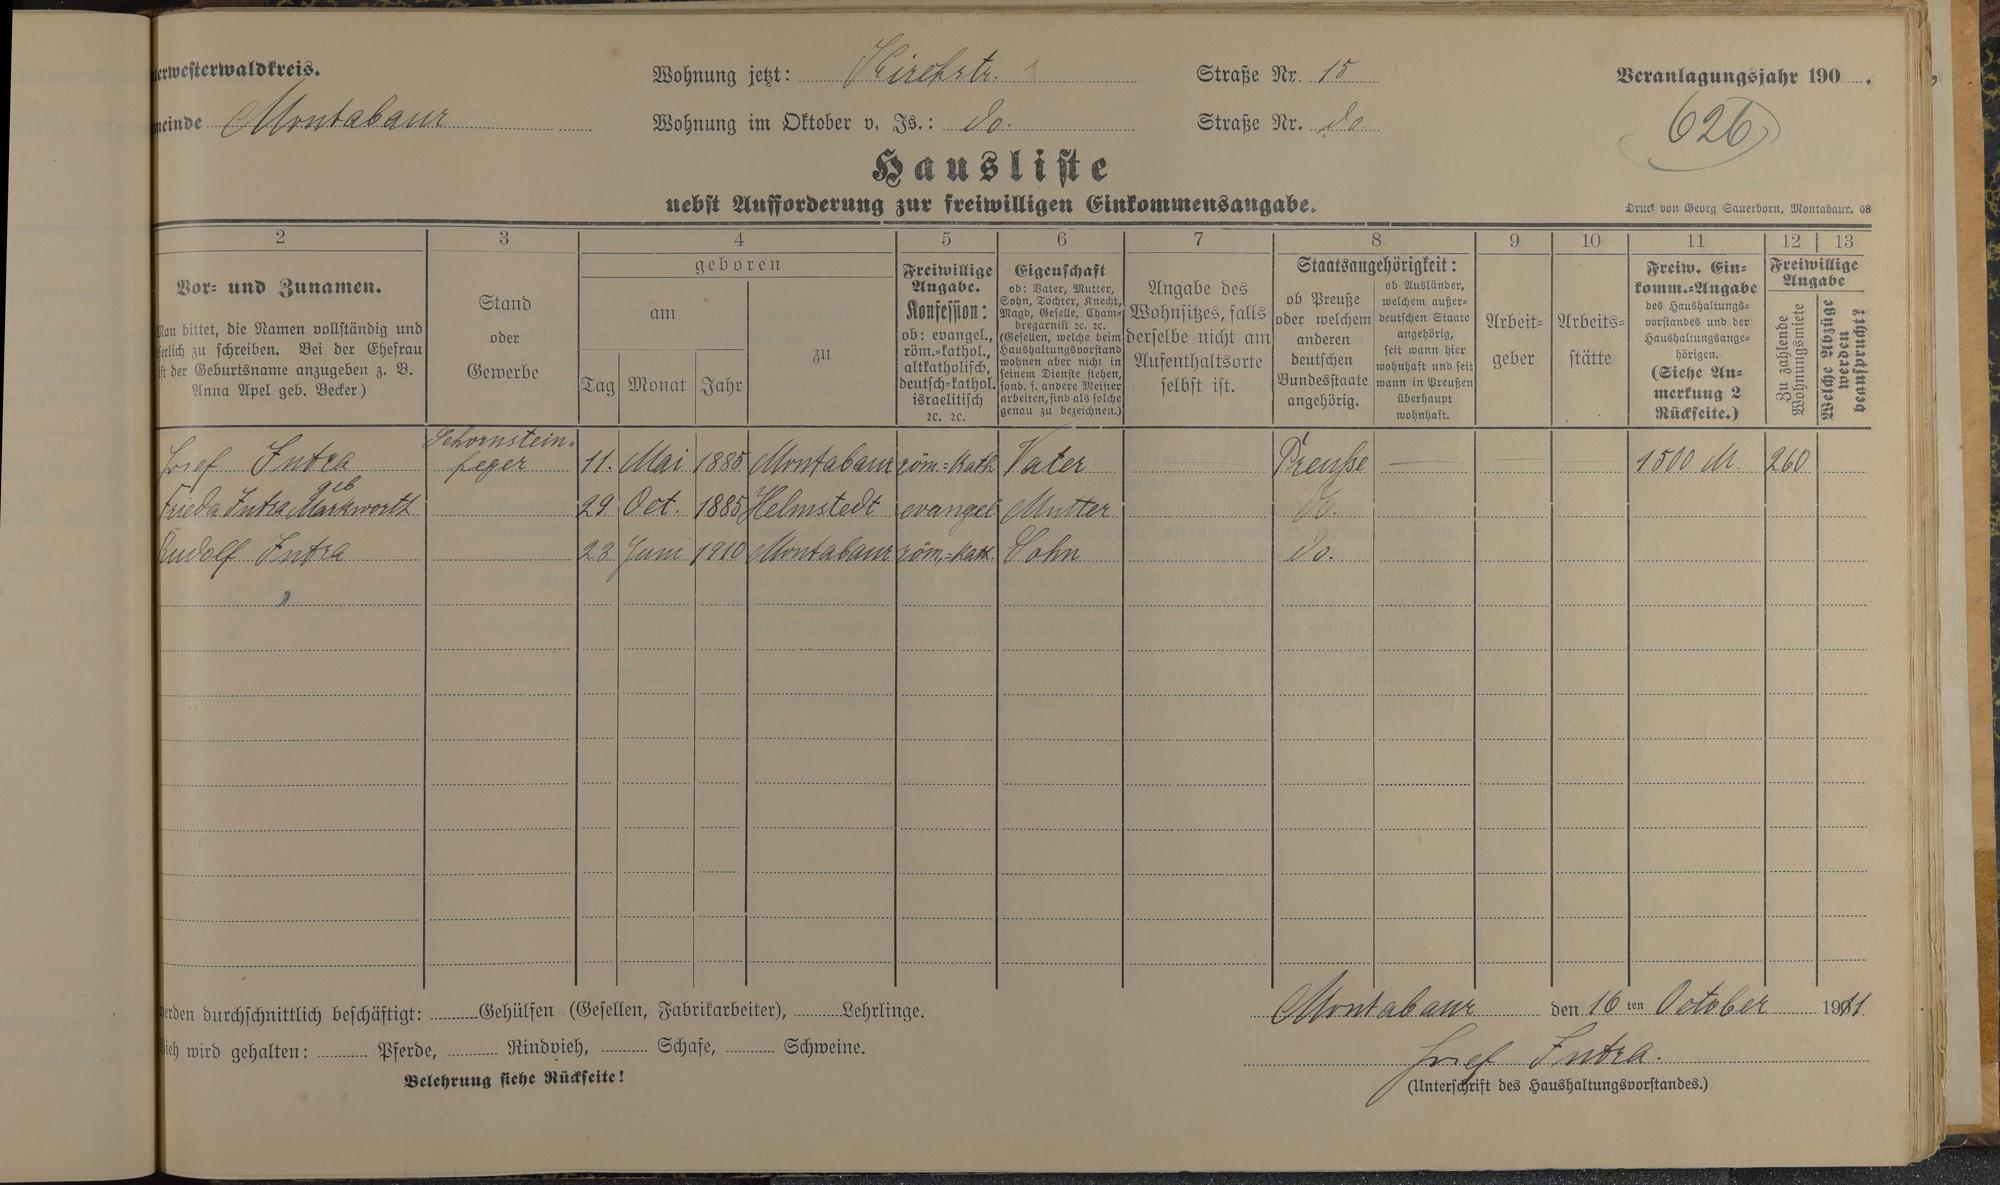 erwesterwaldkreis.
Wohnung jetzt: Kirchstr.
Straße Nr. 15
Veranlagungsjahr 190 .
meinde Montabaur
Wohnung im Oktober v. Js.: do.
Straße Nr. do
626
Hausliste
nebst Aufforderung zur freiwilligen Einkommensangabe.
Druck von Georg Sauerborn, Montabaur. 08
2 3 4 5 6 7 8 9 10 11 12 13
Vor- und Zunamen.
Man bittet, die Namen vollständig und
serlich zu schreiben. Bei der Ehefrau
ist der Geburtsname anzugeben z. B.
Anna Apel geb. Becker)
Stand
oder
Gewerbe
geboren
am
Tag Monat Jahr
zu
Freiwillige
Angabe.
Konfession:
ob: evangel.,
röm.-kathol.,
altkatholisch,
deutsch-kathol.
israelitisch
2c. 2c.
Eigenschaft
ob: Vater, Mutter,
Sohn, Tochter, Knecht,
Magd, Geselle, Cham-
bregarnist 2c. 2c.
(Gesellen, welche beim
Haushaltungsvorstand
wohnen aber nicht in
seinem Dienste stehen,
sond. f. andere Meister
arbeiten, sind als solche
genau zu bezeichnen.)
Angabe des
Wohnsitzes, falls
derselbe nicht am
Aufenthaltsorte
selbst ist.
Staatsangehörigkeit:
ob Preuße
oder welchem
anderen
deutschen
Bundesstaate
angehörig.
ob Ausländer,
welchem außer-
deutschen Staate
angehörig,
seit wann hier
wohnhaft und seit
wann in Preußen
überhaupt
wohnhaft.
Arbeit-
geber
Arbeits-
stätte
Freiw. Ein-
komm.-Angabe
des Haushaltungs-
vorstandes und der
Haushaltungsange-
hörigen.
(Siehe An-
merkung 2
Rückseite.)
Freiwillige
Angabe
Zu zahlende
Wohnungsmiete
Welche Abzüge
werden
beansprucht?
Josef Intra Schornstein-
feger 11. Mai 1885 Montabaur röm.-kath Vater Preuße 1500 M. 260
geb.
Frieda Intra Markworth 29 Oct. 1885 Helmstedt evangel Mutter do.
Rudolf Intra 23 Juni 1910 Montabaur röm.-kath. Sohn do.
erden durchschnittlich beschäftigt: Gehülfen (Gesellen, Fabrikarbeiter), Lehrlinge.
Vieh wird gehalten: Pferde, Rindvieh, Schafe, Schweine.
Belehrung siehe Rückseite!
Montabaur den 16 ten October 1911
Josef Intra.
(Unterschrift des Haushaltungsvorstandes.)